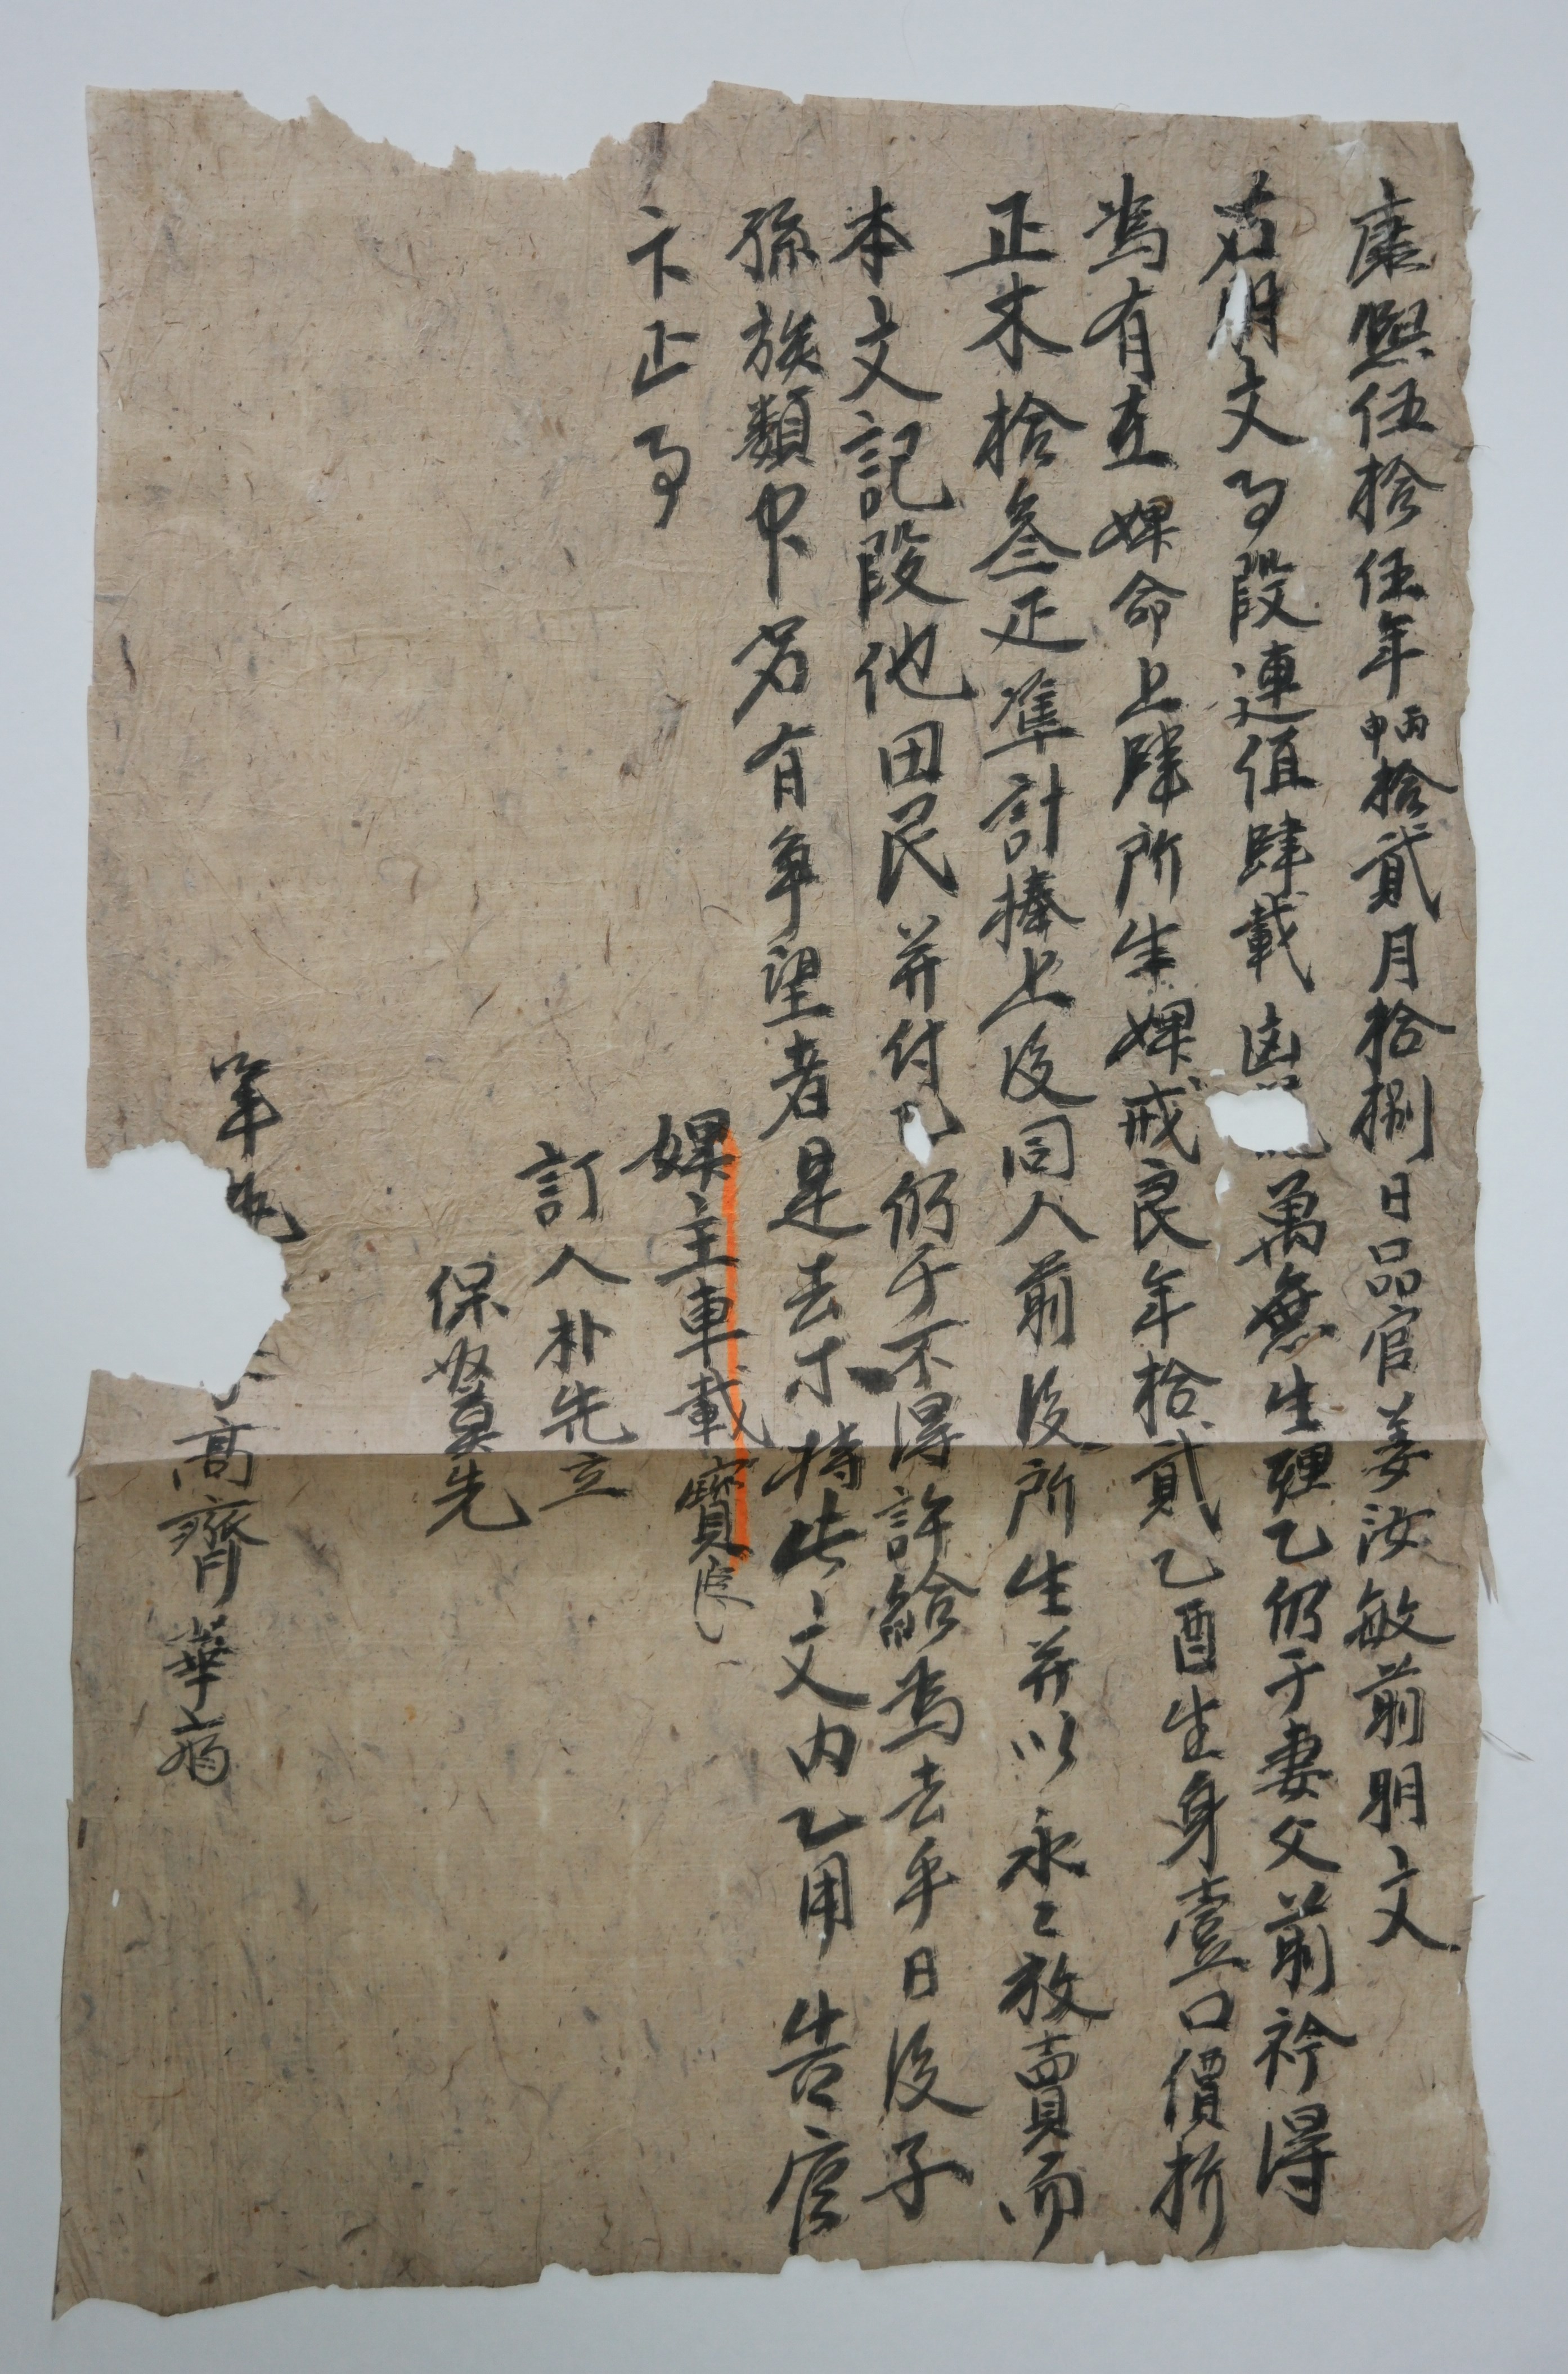 康熙伍拾伍年丙申拾貳月拾捌日品官姜汝敏前明文
右明文事段連值肆載凶萬無生理乙仍于妻父前衿得
爲有在婢命上肆所生婢戒良年拾貳乙酉生身壹口價折
正木拾叄疋準計捧上後同人前後所生并以永〻放賣而
本文記段他田民并付乙仍于不得許給爲去乎日後子
孫族類中名有爭望者是去等持此文內乙用告官
卞正事
婢主車載寶
訂人朴先立
保
筆執
高齊華